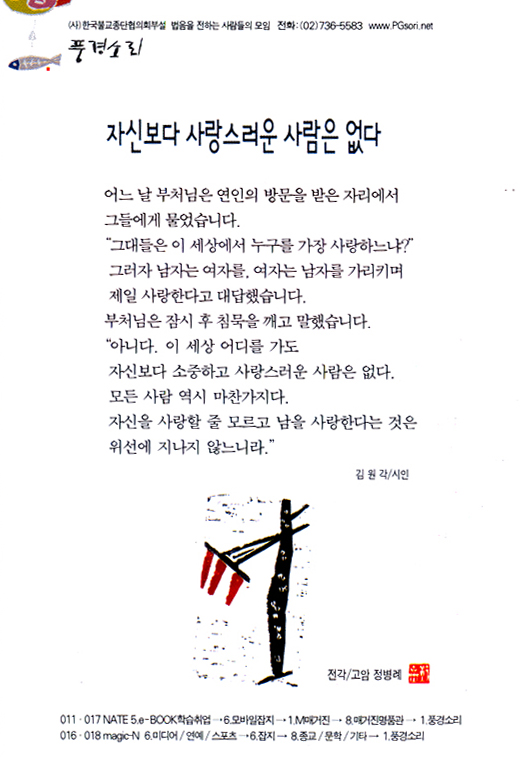 (사)한국불교종단협의회부설 법음을 전하는 사람들의 모임 전화:(02)736-5583 www.PGsori.net
풍경소리
자신보다 사랑스러운 사람은 없다
어느 날 부처님은 연인의 방문을 받은 자리에서
그들에게 물었습니다.
“그대들은 이 세상에서 누구를 가장 사랑하느냐?”
그러자 남자는 여자를, 여자는 남자를 가리키며
제일 사랑한다고 대답했습니다.
부처님은 잠시 후 침묵을 깨고 말했습니다.
“아니다. 이 세상 어디를 가도
자신보다 소중하고 사랑스러운 사람은 없다.
모든 사람 역시 마찬가지다.
자신을 사랑할 줄 모르고 남을 사랑한다는 것은
위선에 지나지 않느니라.”
김 원 각/시인
전각/고암 정병례
011 · 017 NATE 5.e-BOOK학습취업 → 6.모바일잡지 → 1.M매거진 → 8.매거진명품관 → 1.풍경소리
016 · 018 magic-N 6.미디어 / 연예 / 스포츠 → 6.잡지 → 8.종교 / 문학 / 기타 → 1.풍경소리